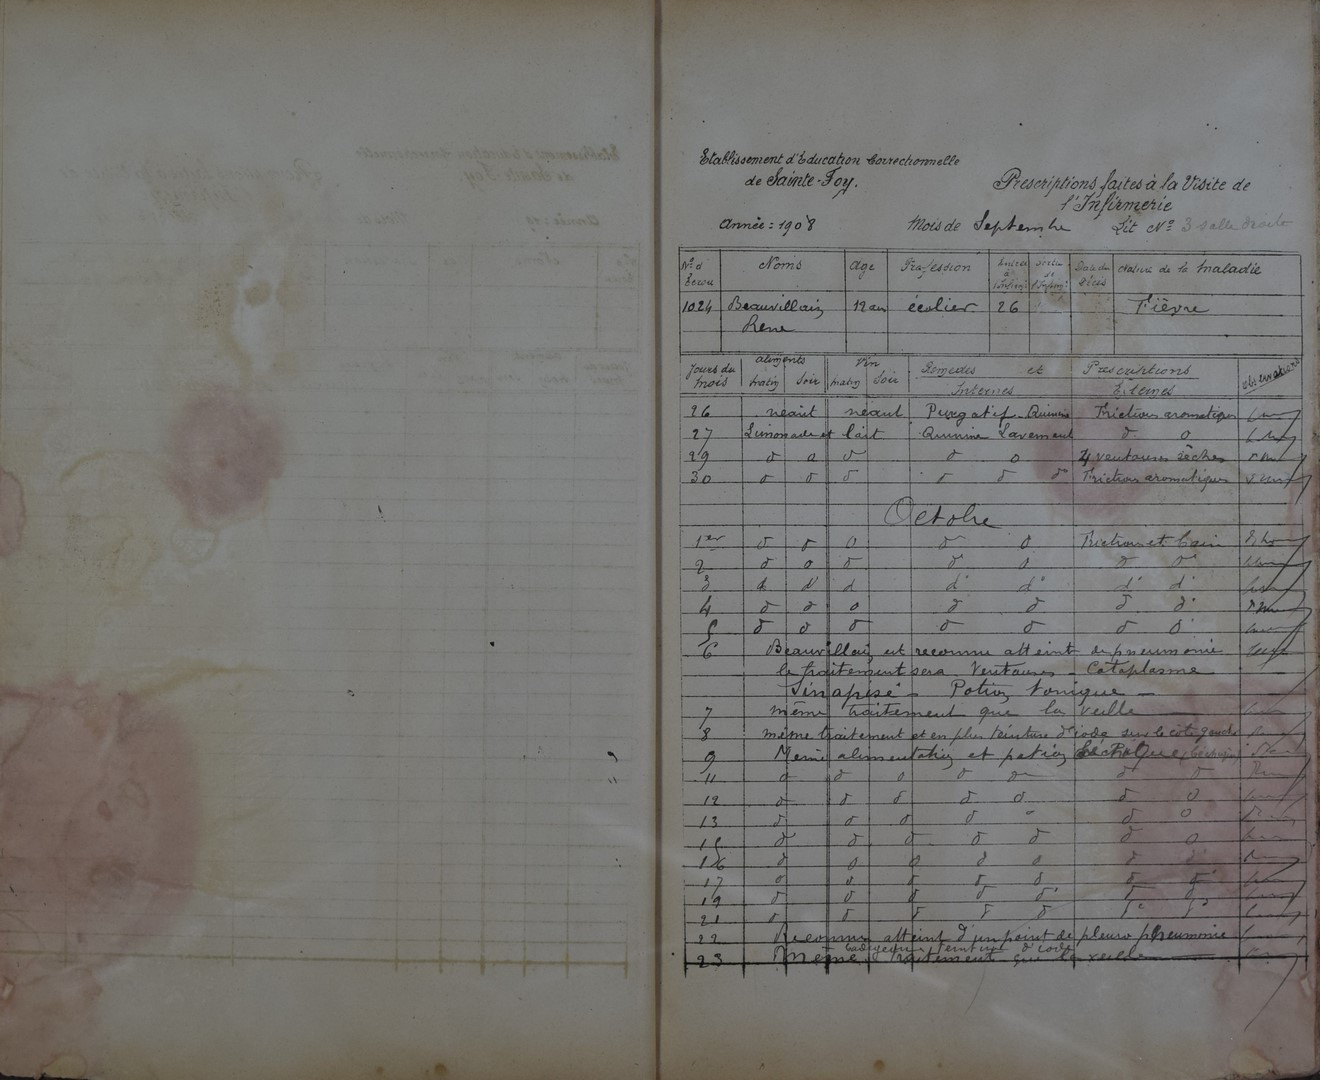 Etablissement d'Education Correctionnelle
de Sainte-Foy.
Prescriptions faites à la Visite de
l'Infirmerie
Année : 1908 Mois de Septembre Lit Nº 3 salle droite
Nº d' Ecrou Noms Age Profession Entrée à l'Infirm. Sortie de l'Infirm. Date du Décès Nature de la Maladie
1024 Beauvillain 12 ans écolier 26 Fièvre
Rene
Jours du mois Aliments Matin Soir Vin Matin Soir Remèdes et Prescriptions Internes Externes Observations
26 néant néant Purgatif Quinine Frictions aromatiques
27 Limonade et lait Quinine Lavement d o
29 d o d d o 4 ventouses sèches
30 d d d d d d Frictions aromatiques
Octobre
1er d d o d o Frictions et bain
2 d o d d o d d
3 d d d d d d d
4 d d o d d d d
5 d d d d d d d
6 Beauvillain est reconnu atteint de pneumonie
le traitement sera Ventouses - Cataplasme
Sinapisé - Potion tonique -
7 même traitement que la veille
8 même traitement et en plus teinture d'iode sur le côté gauche
9 Même alimentation et potion
11 d d o d d d d
12 d d d d d d o
13 d d d d d o
15 d d d d d d o
16 d o o d o d d
17 d d d d d d d
19 d d d d d d d
21 d d d d d d d
22 Reconnu atteint d'un point de pleuro pneumonie
teinture d'iode
23 Même traitement que la veille